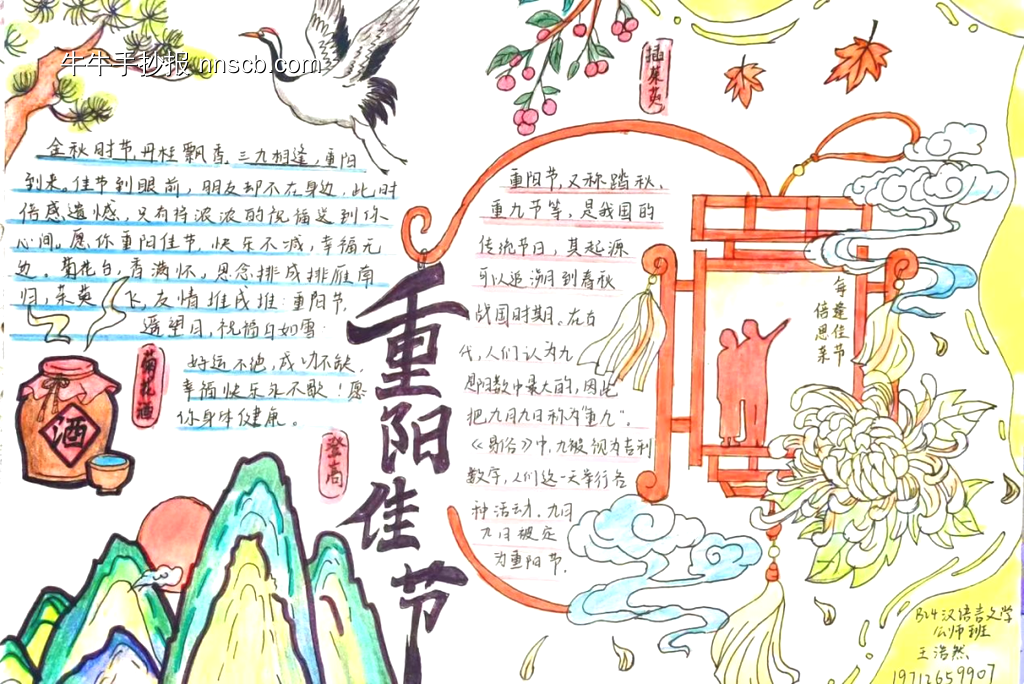 牛牛手抄报 nnscb.com
金秋时节,丹桂飘香,三九相逢,重阳
到来。佳节到眼前,朋友却不在身边,此时
倍感遗憾,只有将浓浓的祝福送到你
心间。愿你重阳佳节,快乐不减,幸福无
边。菊花白,香满怀,思念排成排雁南
归,茱萸飞,友情堆成堆:重阳节,
遥望月,祝福白如雪:
好运不绝,成功不缺,
幸福快乐永不歇!愿
你身体健康。
菊花酒
酒
登高
重阳佳节
插茱萸
重阳节,又称踏秋、
重九节等,是我国的
传统节日,其起源
可以追溯到春秋
战国时期。在古
代,人们认为九
是阳数中最大的,因此
把九月九日称为"重九"。
《易俗》中,九被视为吉利
数字,人们这一天举行各
种活动,九月
九日被定
为重阳节.
每逢佳节
倍思亲
B24汉语言文学
公师班
王浩然
19712659907